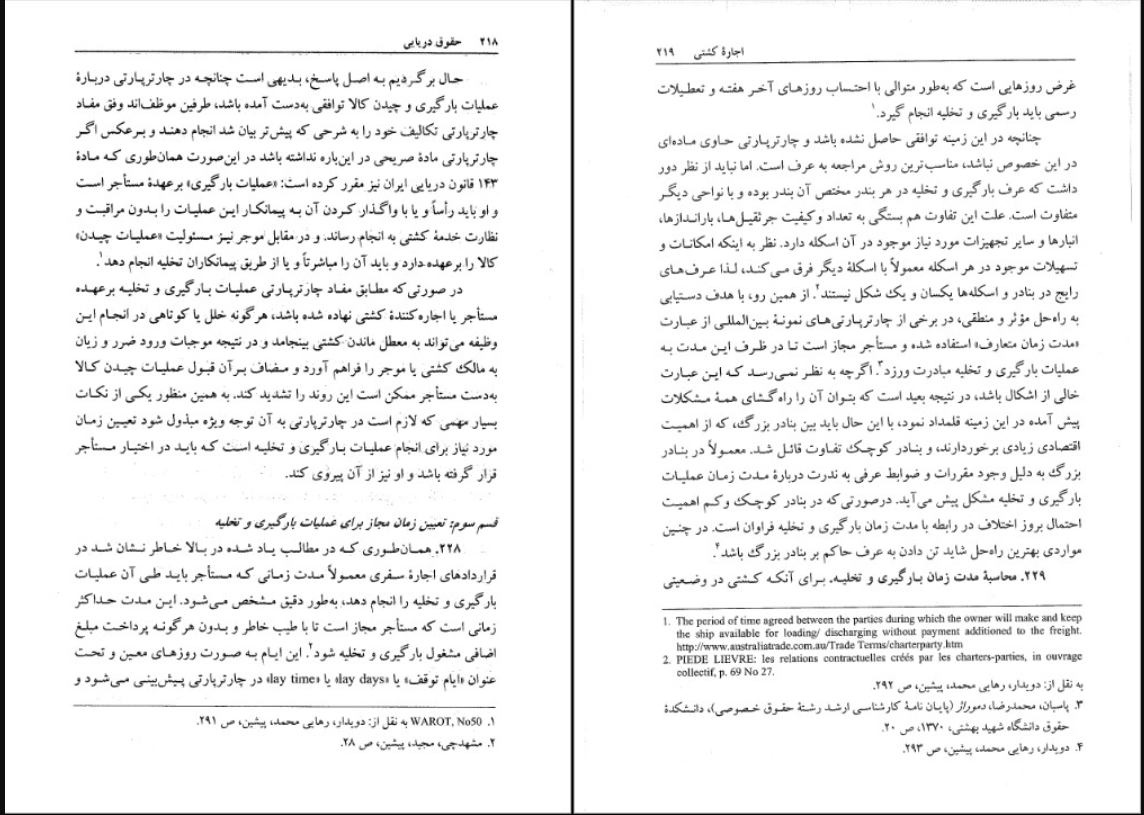 ۲۱۸ حقوق دریایی
حال برگردیم به اصل پاسخ، بدیهی است چنانچه در چارترپارتی دربارهٔ
عملیات بارگیری و چیدن کالا توافقی به‌دست آمده باشد، طرفین موظف‌اند وفق مفاد
چارترپارتی تکالیف خود را به شرحی که پیش‌تر بیان شد انجام دهند و برعکس اگر
چارترپارتی مادهٔ صریحی در این‌باره نداشته باشد در این‌صورت همان‌طوری که مادهٔ
۱۴۳ قانون دریایی ایران نیز مقرر کرده است: «عملیات بارگیری» برعهدهٔ مستأجر است
و او باید رأساً و یا با واگذار کردن آن به پیمانکار این عملیات را بدون مراقبت و
نظارت خدمهٔ کشتی به انجام رساند. و در مقابل موجر نیز مسئولیت «عملیات چیدن»
کالا را برعهده دارد و باید آن را مباشرتاً و یا از طریق پیمانکاران تخلیه انجام دهد.۱
در صورتی‌که مطابق مفاد چارترپارتی عملیات بارگیری و تخلیه برعهده
مستأجر یا اجاره‌کنندهٔ کشتی نهاده شده باشد، هرگونه خلل یا کوتاهی در انجام این
وظیفه می‌تواند به معطل ماندن کشتی بینجامد و در نتیجه موجبات ورود ضرر و زیان
به مالک کشتی یا موجر را فراهم آورد و مضاف برآن قبول عملیات چیدن کالا
به‌دست مستأجر ممکن است این روند را تشدید کند. به همین منظور یکی از نکات
بسیار مهمی که لازم است در چارترپارتی به آن توجه ویژه مبذول شود تعیین زمان
مورد نیاز برای انجام عملیات بارگیری و تخلیه است که باید در اختیار مستأجر
قرار گرفته باشد و او نیز از آن پیروی کند.
قسم سوم: تعیین زمان مجاز برای عملیات بارگیری و تخلیه
۲۲۸. همان‌طوری که در مطالب یاد شده در بالا خاطر نشان شد در
قراردادهای اجارهٔ سفری معمولاً مدت زمانی که مستأجر باید طی آن عملیات
بارگیری و تخلیه را انجام دهد، به‌طور دقیق مشخص می‌شود. این مدت حداکثر
زمانی است که مستأجر مجاز است تا با طیب خاطر و بدون هرگونه پرداخت مبلغ
اضافی مشغول بارگیری و تخلیه شود.۲ این ایام به صورت روزهای معین و تحت
عنوان «ایام توقف» یا «lay days» یا «lay time» در چارترپارتی پیش‌بینی می‌شود و
۱. WAROT, No50 به نقل از: دویدار، رهایی محمد، پیشین، ص ۲۹۱.
۲. مشهدچی، مجید، پیشین، ص ۲۸.
اجارهٔ کشتی ۲۱۹
غرض روزهایی است که به‌طور متوالی با احتساب روزهای آخر هفته و تعطیلات
رسمی باید بارگیری و تخلیه انجام گیرد.۱
چنانچه در این زمینه توافقی حاصل نشده باشد و چارترپارتی حاوی ماده‌ای
در این خصوص نباشد، مناسب‌ترین روش مراجعه به عرف است. اما نباید از نظر دور
داشت که عرف بارگیری و تخلیه در هر بندر مختص آن بندر بوده و با نواحی دیگر
متفاوت است. علت این تفاوت هم بستگی به تعداد وکیفیت جرثقیل‌ها، باراندازها،
انبارها و سایر تجهیزات مورد نیاز موجود در آن اسکله دارد. نظر به اینکه امکانات و
تسهیلات موجود در هر اسکله معمولاً با اسکلهٔ دیگر فرق می‌کند، لذا عرف‌های
رایج در بنادر و اسکله‌ها یکسان و یک شکل نیستند.۲ از همین رو، با هدف دستیابی
به راه‌حل مؤثر و منطقی، در برخی از چارترپارتی‌های نمونهٔ بین‌المللی از عبارت
«مدت زمان متعارف» استفاده شده و مستأجر مجاز است تا در ظرف این مدت به
عملیات بارگیری و تخلیه مبادرت ورزد.۳ اگرچه به نظر نمی‌رسد که این عبارت
خالی از اشکال باشد، در نتیجه بعید است که بتوان آن را راه‌گشای همهٔ مشکلات
پیش آمده در این زمینه قلمداد نمود، با این حال باید بین بنادر بزرگ، که از اهمیت
اقتصادی زیادی برخوردارند، و بنادر کوچک تفاوت قائل شد. معمولاً در بنادر
بزرگ به دلیل وجود مقررات و ضوابط عرفی به ندرت دربارهٔ مدت زمان عملیات
بارگیری و تخلیه مشکل پیش می‌آید. درصورتی‌که در بنادر کوچک وکم اهمیت
احتمال بروز اختلاف در رابطه با مدت زمان بارگیری و تخلیه فراوان است. در چنین
مواردی بهترین راه‌حل شاید تن دادن به عرف حاکم بر بنادر بزرگ باشد.۴
۲۲۹. محاسبهٔ مدت زمان بارگیری و تخلیه. برای آنکه کشتی در وضعیتی
1. The period of time agreed between the parties during which the owner will make and keep
the ship available for loading/ discharging without payment additioned to the freight.
http://www.australiatrade.com.au/Trade Terms/charterparty.htm
2. PIEDE LIEVRE: les relations contractuelles créés par les charters-parties, in ouvrage
collectif, p. 69 No 27.
به نقل از: دویدار، رهایی محمد، پیشین، ص ۲۹۲.
۳. پاسبان، محمدرضا، دموراژ (پایان نامهٔ کارشناسی ارشد رشتهٔ حقوق خصوصی)، دانشکدهٔ
حقوق دانشگاه شهید بهشتی، ۱۳۷۰، ص ۲۰.
۴. دویدار، رهایی محمد، پیشین، ص ۲۹۳.